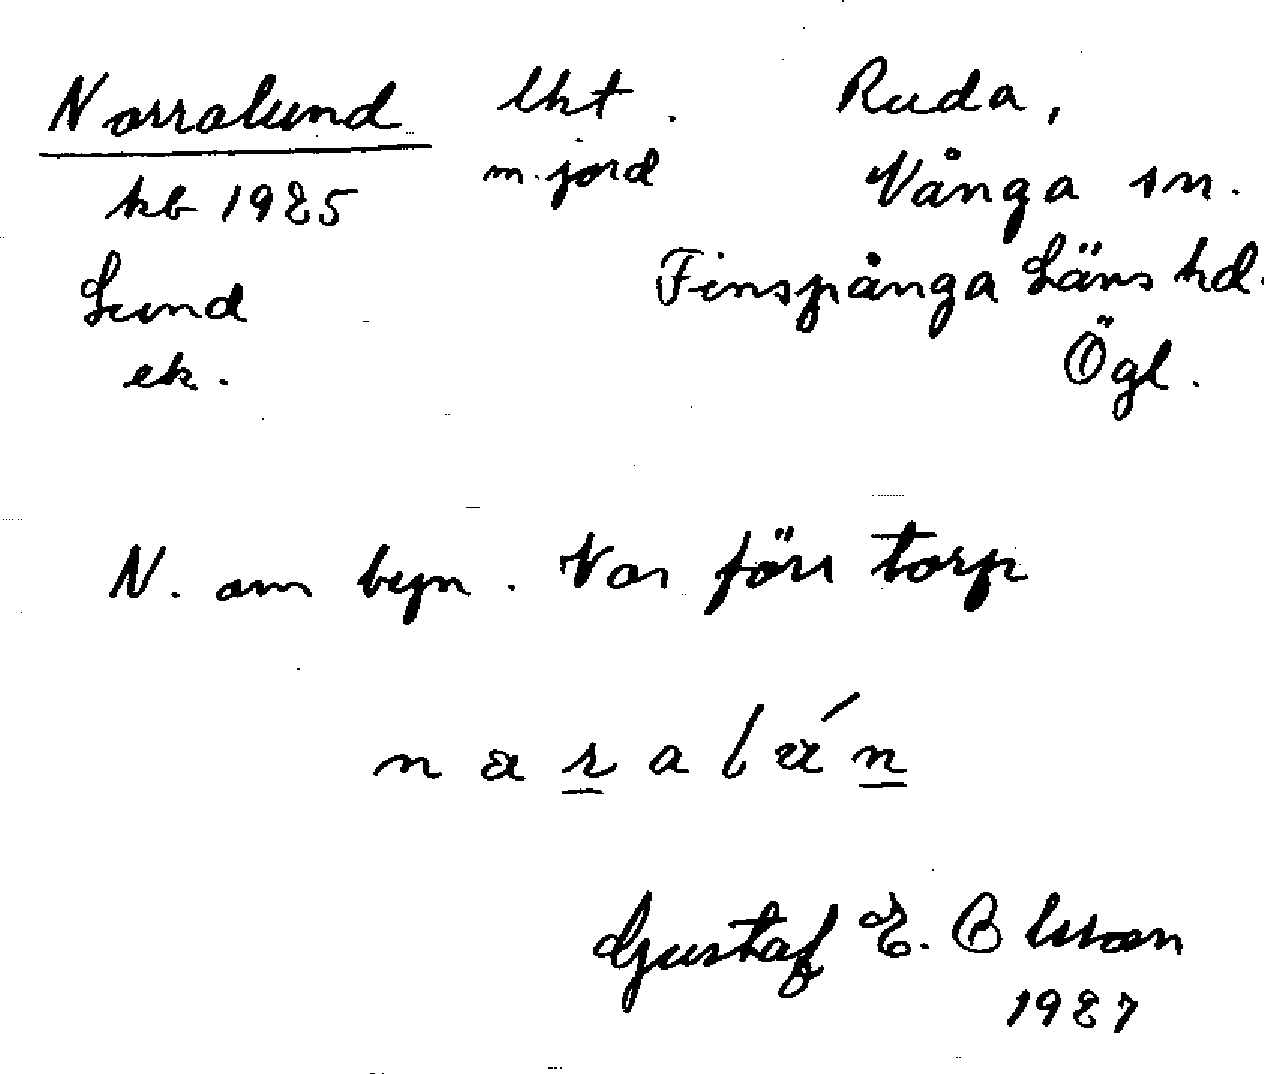 Norralund lht. Ruda,
m. jord Vånga sn.
kb 1925
Lund Finspånga Läns hd.
ek. Ögl.
N. om byn. Var förr torp
Gustaf E. Olsson
1927